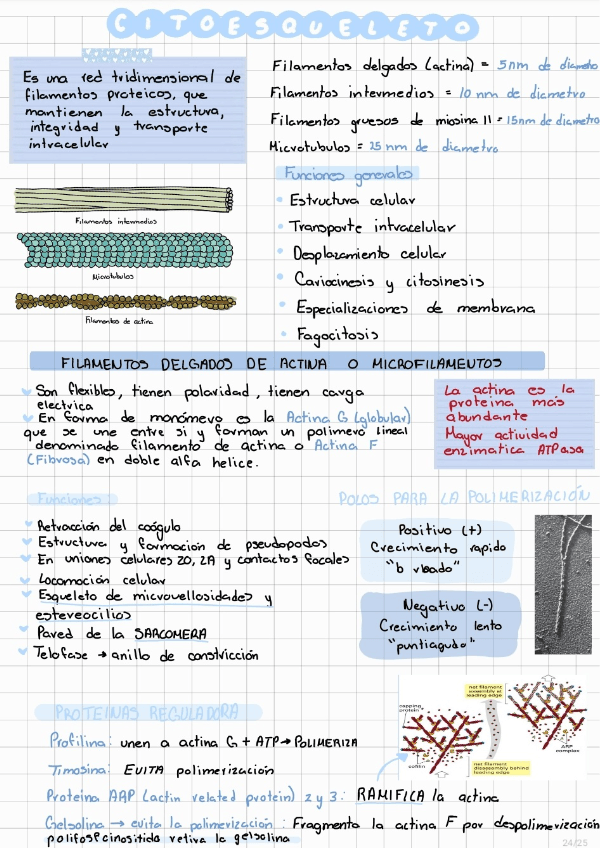 CITOESQUELETO
Es una red tridimensional de
filamentos proteicos, que
mantienen la estructura,
integridad y transporte
intracelular
Filamentos delgados (actina) = 5nm de diametro
Filamentos intermedios = 10 nm de diametro
Filamentos gruesos de miosina II = 15nm de diametro
Microtubulos = 25 nm de diametro
Funciones generales
Estructura celular
Transporte intracelular
Desplazamiento celular
Cariocinesis y citosinesis
Especializaciones de membrana
Fagocitosis
Filamentos intermedios
Microtubulos
Filamentos de actina
FILAMENTOS DELGADOS DE ACTINA O MICROFILAMENTOS
Son flexibles, tienen polaridad, tienen carga
electrica
En forma de monómero es la Actina G (globular)
que se une entre si y forman un polimero lineal
denominado filamento de actina o Actina F
(Fibrosa) en doble alfa helice.
La actina es la
proteina más
abundante
Mayor actividad
enzimatica ATPasa
Funciones:
Retracción del coágulo
Estructura y formación de pseudopodos
En uniones celulares ZO, ZA y contactos focales
Locomoción celular
Esqueleto de microvellosidades y
estereocilios
Pared de la SARCOMERA
Telofase → anillo de constricción
POLOS PARA LA POLIMERIZACIÓN
Positivo (+)
Crecimiento rapido
"b rbado"
Negativo (-)
Crecimiento lento
"puntiagudo"
PROTEINAS REGULADORA
Profilina: unen a actina G + ATP → POLIMERIZA
Timosina: EVITA polimerización
Proteina AAP (actin related protein) 2 y 3: RAMIFICA la actina
Gelsolina → evita la polimerización : Fragmenta la actina F por despolimerización
polifosfoinositida retira la gelsolina
capping
protein
cofilin
net filament
assembly at
leading edge
net filament
disassembly behind
leading edge
ARP
complex
24/25